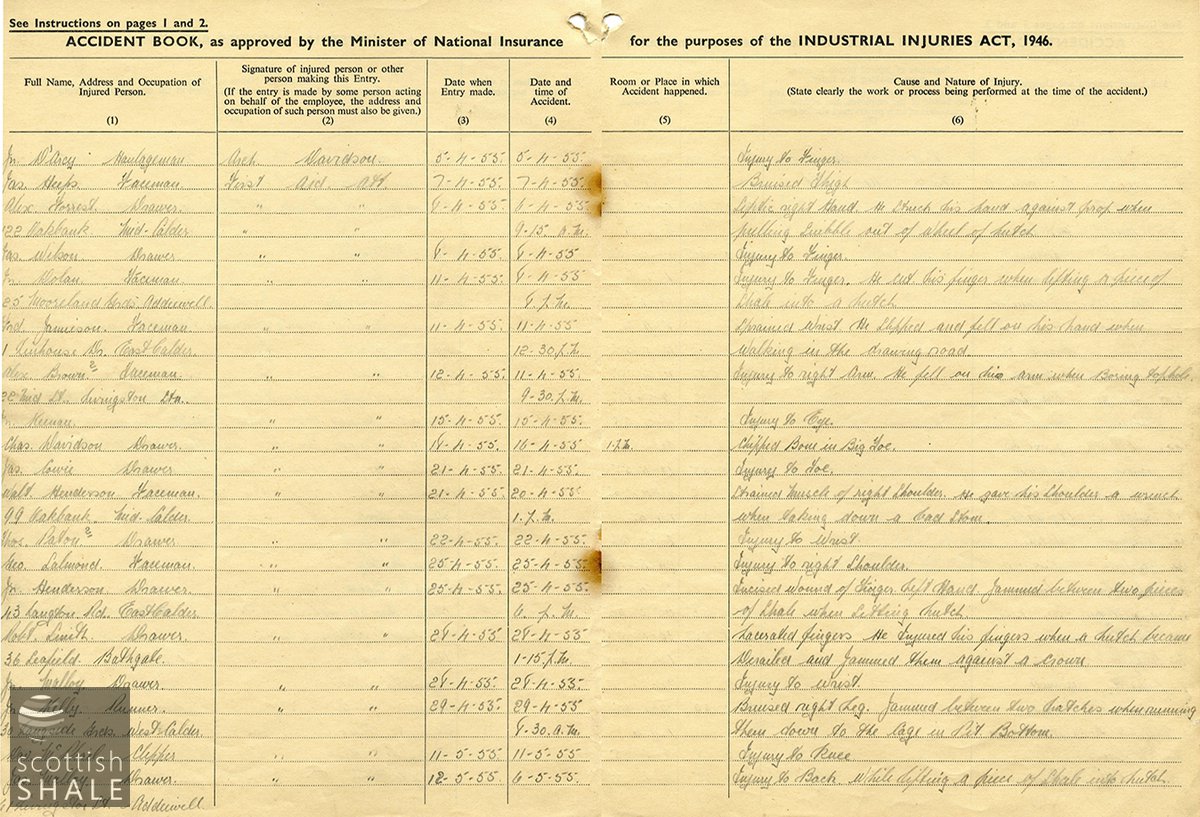 See Instructions on pages 1 and 2.
ACCIDENT BOOK, as approved by the Minister of National Insurance for the purposes of the INDUSTRIAL INJURIES ACT, 1946.
Full Name, Address and Occupation of Injured Person. (1)
Signature of injured person or other person making this Entry. (If the entry is made by some person acting on behalf of the employee, the address and occupation of such person must also be given.) (2)
Date when Entry made. (3)
Date and time of Accident. (4)
Room or Place in which Accident happened. (5)
Cause and Nature of Injury. (State clearly the work or process being performed at the time of the accident.) (6)
D'Arcy Haulageman Arch Davidson 5-4-55. 5-4-55. Injury to Finger.
Jas. Heeps Faceman First Aid Att 7-4-55. 7-4-55. Bruised Thigh
Alex Forrest Drawer " " Septic right Hand. He Struck his hand against prop when
122 Oakbank Mid-Calder " " 9-15 a.m. pulling Snibble out of wheel of hutch
Jas Wilson Drawer " " Injury to Finger.
Dolan Faceman " " 11-4-55. Injury to Finger. He cut his finger when lifting a piece of
25 Mooreland Addiewell. Shale into a hutch
Jamieson. Faceman " " 11-4-55 11-4-55. Sprained Wrist He Slipped and fell on his hand when
1 Dr. East Calder. 12-30 p.m. Walking in the drawing road.
Alex Brown Faceman " " 12-4-55 11-4-55. Injury to right Arm. He fell on his arm when Boring tophole.
22 Mid St. Livingston Stn. 9-30 p.m.
Keenan " " 15-4-55. 15-4-55. Injury to Eye.
Chas. Davidson Drawer " " 16-4-55. 1 p.m. Chipped Bone in Big Toe.
Jas. Cowie Drawer " " 21-4-55. 21-4-55. Injury to Toe.
Walt. Henderson Faceman. " " 21-4-55. 20-4-55. Strained Muscle of right Shoulder. He gave his Shoulder a wrench
99 Oakbank Mid-Calder 1 p.m. when taking down a bad Stone.
Paton Drawer " " 22-4-55. 22-4-55. Injury to Wrist.
Geo. Salmond. Faceman. " " 25-4-55. 25-4-55. Injury to right Shoulder.
Henderson Drawer " " 25-4-55. 25-4-55. Incised wound of Finger left Hand Jammed between two pieces
43 Langton Rd. East Calder. 6 p.m. of Shale when Setting hutch
Robt. Smith Drawer. " " Lacerated fingers He Injured his fingers when a hutch became
36 Leafield Bathgate. 1-15 p.m. Derailed and Jammed them against a crown
Drawer " " Injury to Wrist.
Kelly Runner. " " 29-4-55. 29-4-55 Bruised right Leg. Jammed between two hutches when running
West Calder. 8-30 a.m. them down to the Cage in Pit Bottom.
Clipper " 11-5-55 11-5-55 Injury to Knee
Drawer " " 12-5-55 6-5-55. Injury to Back. While lifting a piece of Shale into hutch.
Addiewell
scottish
SHALE